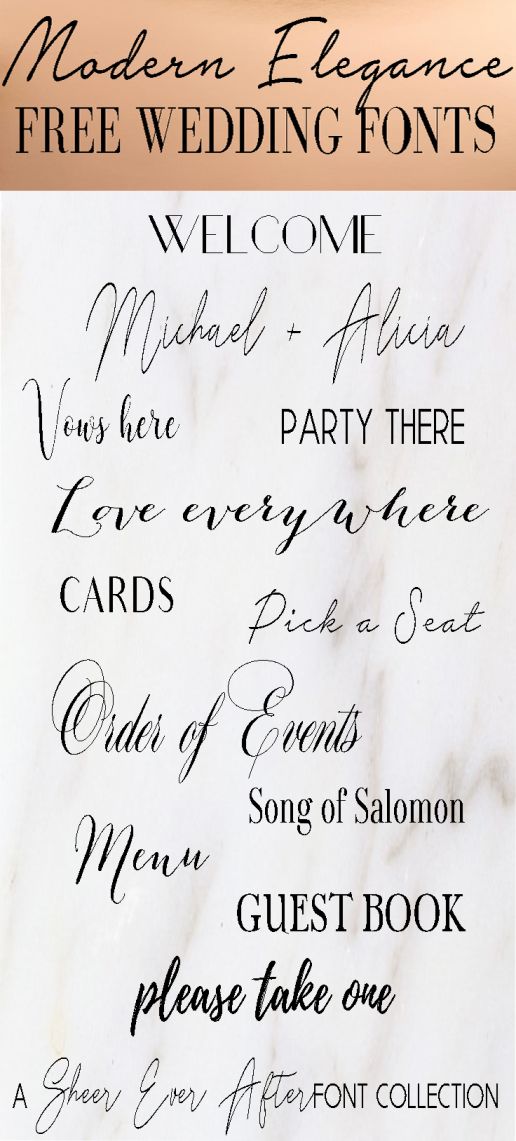 Modern Elegance
FREE WEDDING FONTS
WELCOME
Michael + Alicia
Vows here PARTY THERE
Love everywhere
CARDS
Pick a Seat
Order of Events
Song of Salomon
Menu
GUEST BOOK
please take one
A Sheer Ever After FONT COLLECTION